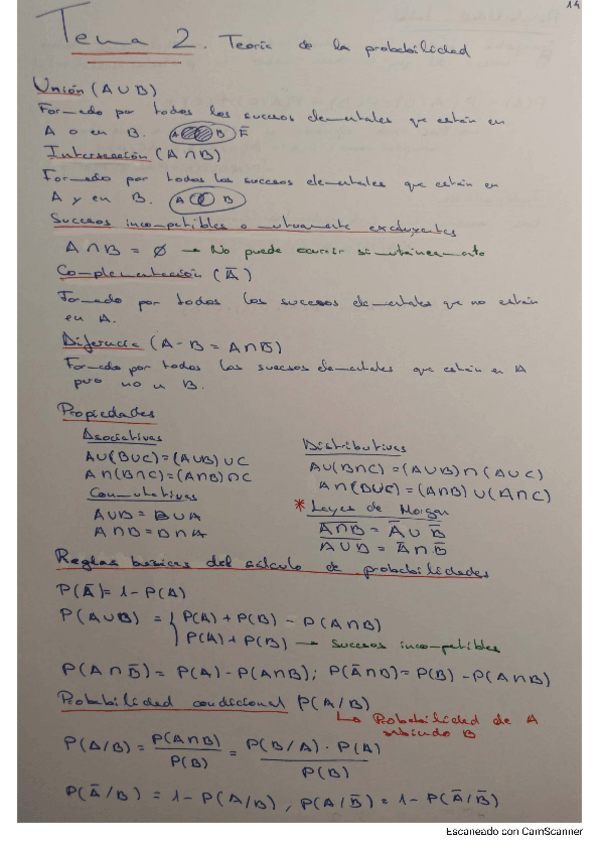 14
Tema 2. Teoría de la probabilidad
Unión (A ∪ B)
Formado por todos los sucesos elementales que están en
A o en B. A B E
Intersección (A ∩ B)
Formado por todos los sucesos elementales que están en
A y en B. A B
Sucesos incompatibles o mutuamente excluyentes
A ∩ B = ∅ → No puede ocurrir simultáneamente
Complementación (Ā)
Formado por todos los sucesos elementales que no están
en A.
Diferencia (A - B = A ∩ B̄)
Formado por todos los sucesos elementales que están en A
pero no en B.
Propiedades
Asociativas
A∪(B∪C)=(A∪B)∪C
A∩(B∩C)=(A∩B)∩C
Conmutativas
A∪B = B∪A
A∩B = B∩A
Distributivas
A∪(B∩C) = (A∪B)∩(A∪C)
A∩(B∪C) = (A∩B)∪(A∩C)
* Leyes de Morgan
A̅∩̅B̅ = Ā ∪ B̄
A̅∪̅B̅ = Ā ∩ B̄
Reglas básicas del cálculo de probabilidades
P(Ā) = 1 - P(A)
P(A∪B) = { P(A) + P(B) - P(A∩B)
P(A) + P(B) → Sucesos incompatibles
P(A∩B̄) = P(A) - P(A∩B); P(Ā∩B) = P(B) - P(A∩B)
Probabilidad condicional P(A/B)
↳ Probabilidad de A
sabiendo B
P(A/B) = P(A∩B) / P(B) = P(B/A) · P(A) / P(B)
P(Ā/B) = 1 - P(A/B), P(A/B̄) = 1 - P(Ā/B̄)
Escaneado con CamScanner